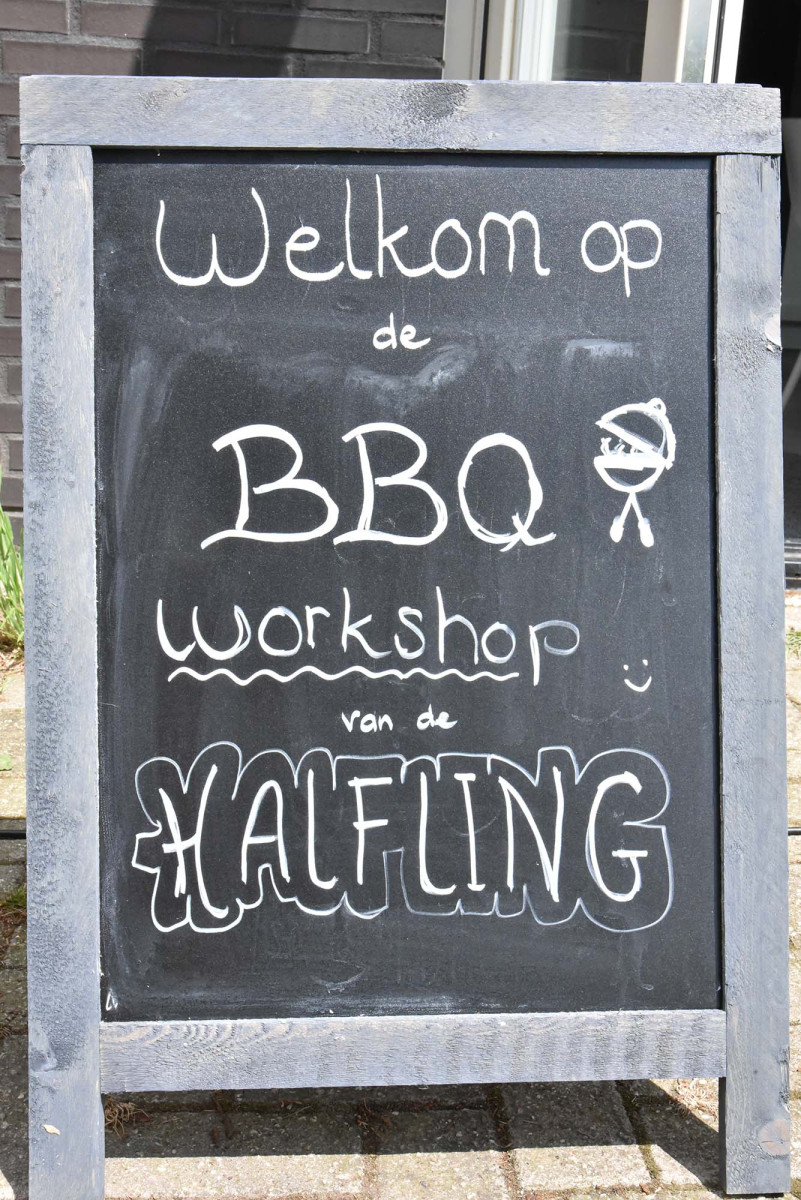 Welkom op
de
BBQ
workshop
van de
HALFLING